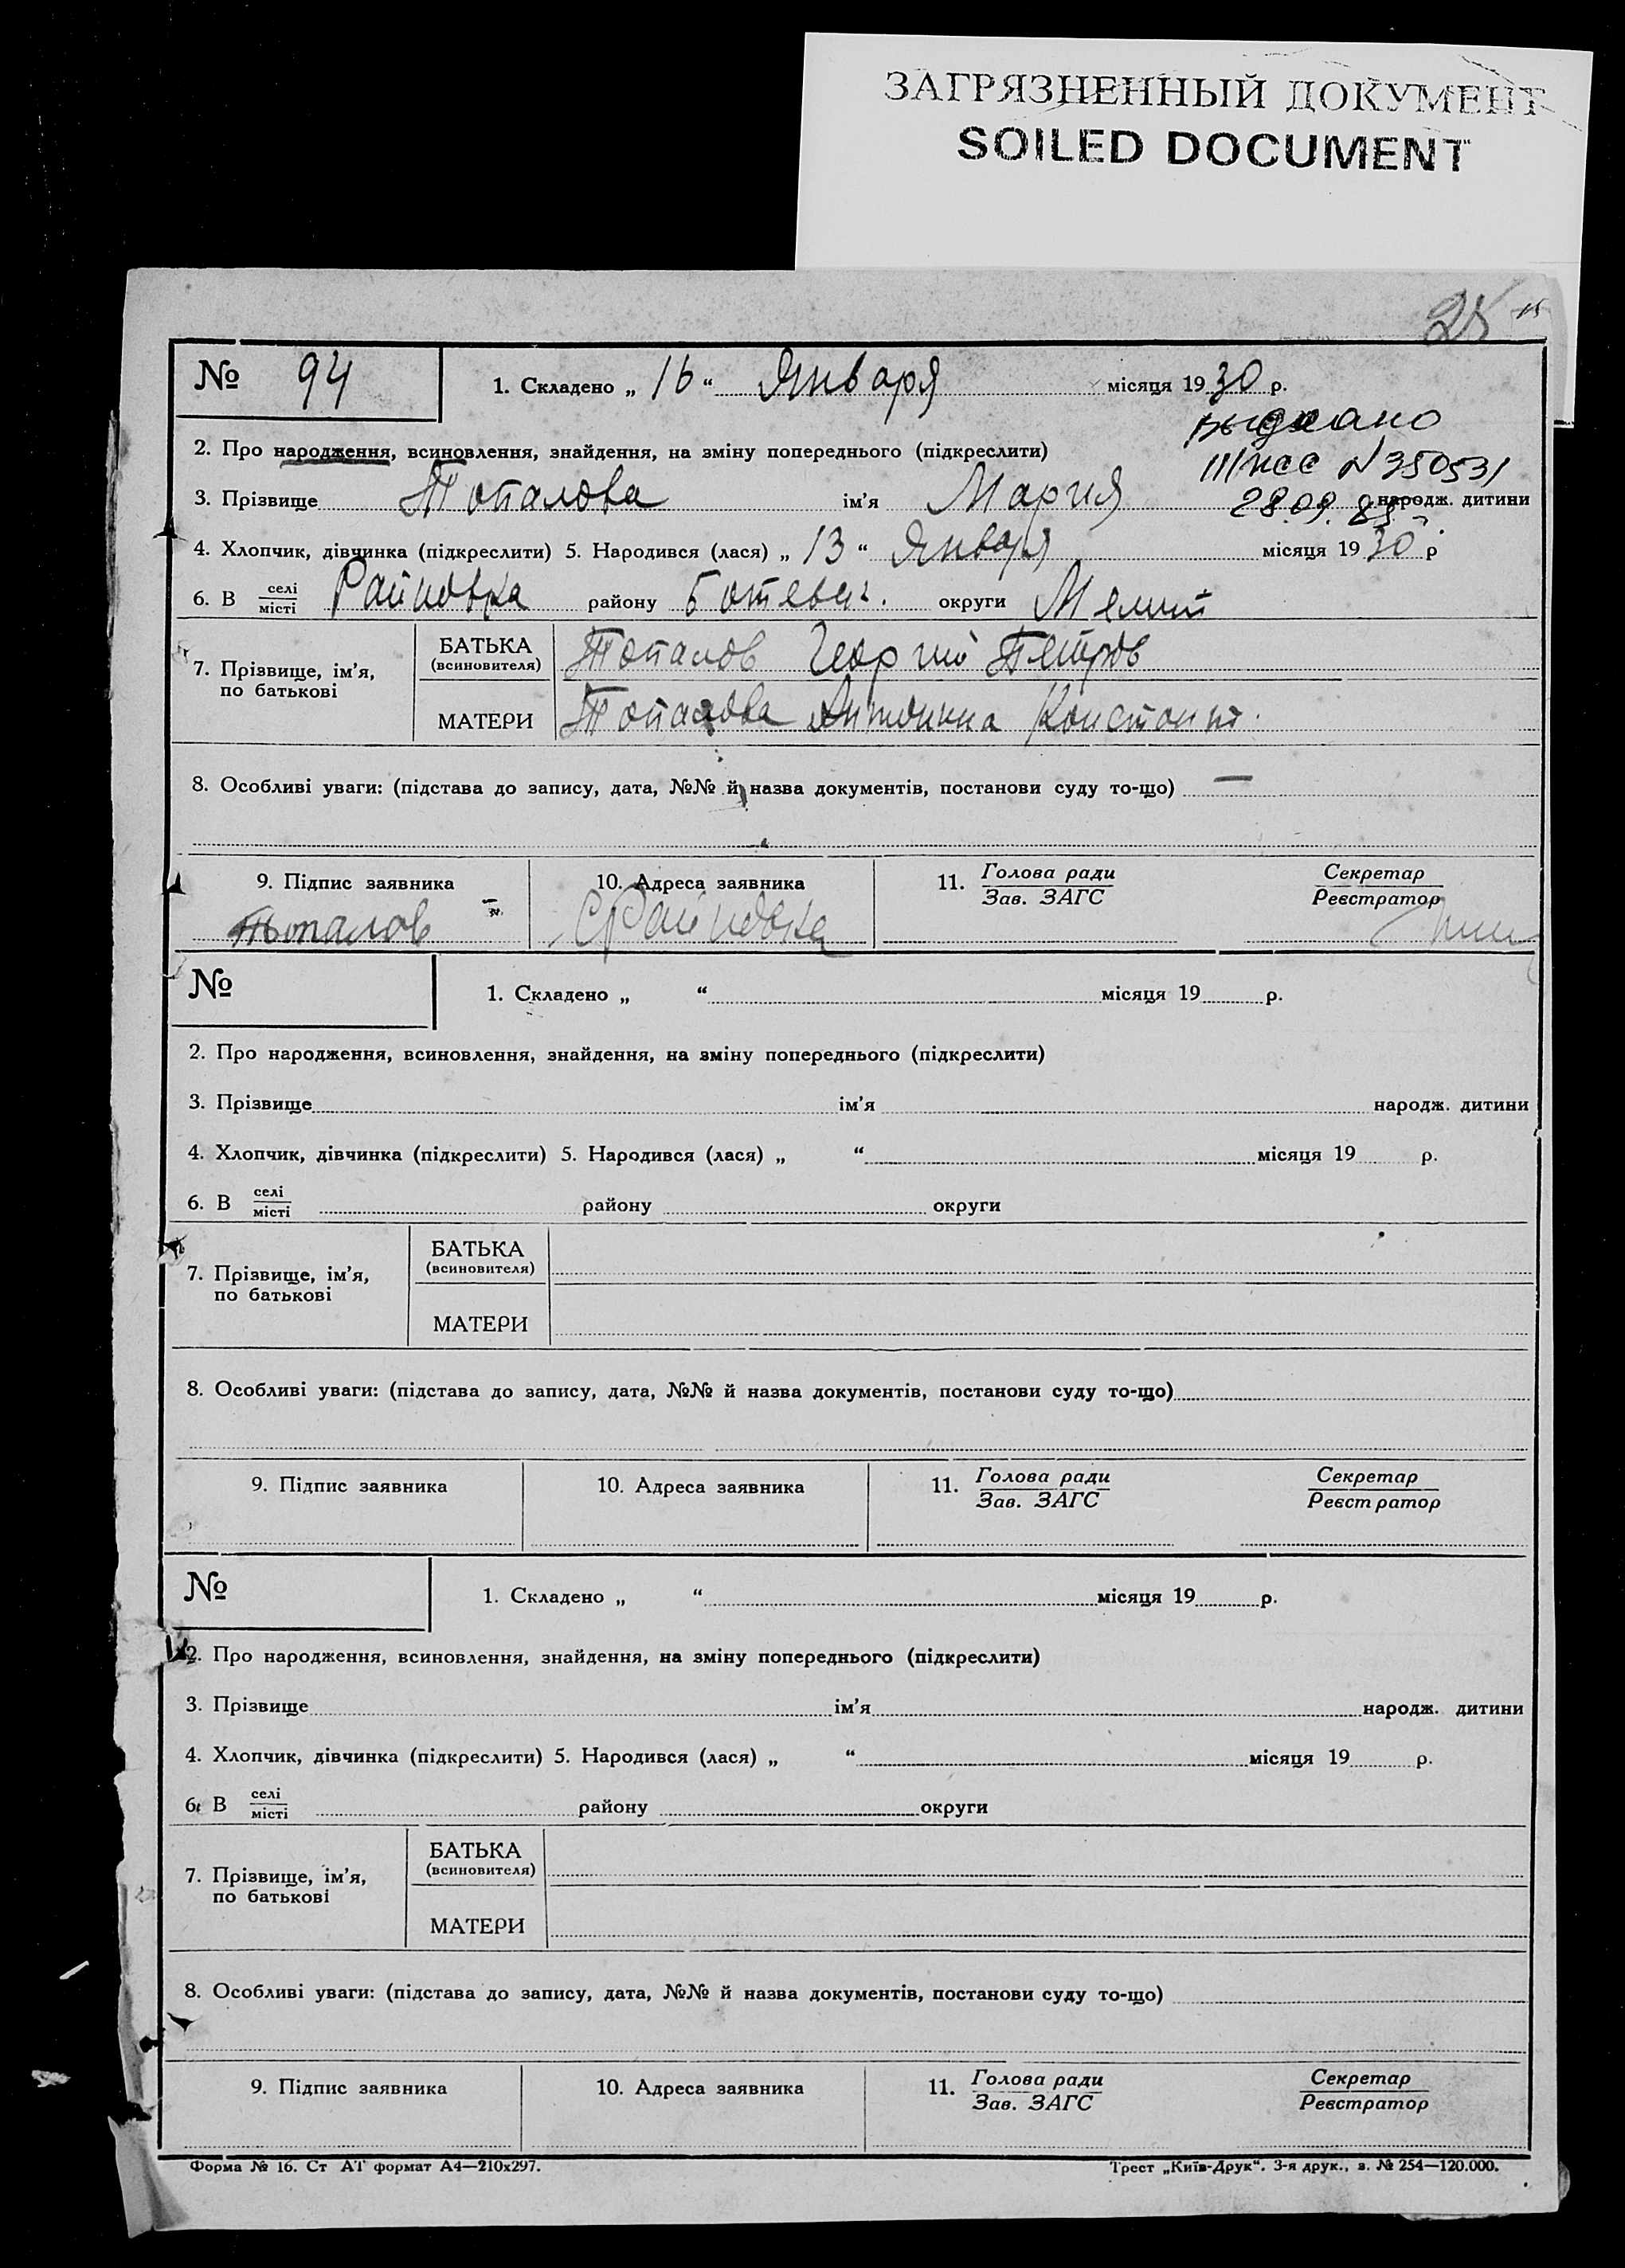 ЗАГРЯЗНЕННЫЙ ДОКУМЕНТ
SOILED DOCUMENT
25 15
№ 94 1. Складено „ 16 “ Января місяця 1930 р.
выдано
2. Про народження, всиновлення, знайдення, на зміну попереднього (підкреслити)
N 350531
3. Прізвище Топалова ім’я Мария народж. дитини
28.09.
4. Хлопчик, дівчинка (підкреслити) 5. Народився (лася) „ 13 “ Января місяця 1930 р
6. В селі/місті Райновка району Ботевск. округи Мелит
7. Прізвище, ім’я, по батькові
БАТЬКА (всиновителя) Топалов Георгий Петров
МАТЕРИ Топалова Антонина Констант.
8. Особливі уваги: (підстава до запису, дата, №№ й назва документів, постанови суду то-що) —
9. Підпис заявника 10. Адреса заявника 11. Голова ради/Зав. ЗАГС Секретар/Реєстратор
Топалов с Райновка
№ 1. Складено „ “ місяця 19 р.
2. Про народження, всиновлення, знайдення, на зміну попереднього (підкреслити)
3. Прізвище ім’я народж. дитини
4. Хлопчик, дівчинка (підкреслити) 5. Народився (лася) „ “ місяця 19 р.
6. В селі/місті району округи
7. Прізвище, ім’я, по батькові
БАТЬКА (всиновителя)
МАТЕРИ
8. Особливі уваги: (підстава до запису, дата, №№ й назва документів, постанови суду то-що)
9. Підпис заявника 10. Адреса заявника 11. Голова ради/Зав. ЗАГС Секретар/Реєстратор
№ 1. Складено „ “ місяця 19 р.
2. Про народження, всиновлення, знайдення, на зміну попереднього (підкреслити)
3. Прізвище ім’я народж. дитини
4. Хлопчик, дівчинка (підкреслити) 5. Народився (лася) „ “ місяця 19 р.
6. В селі/місті району округи
7. Прізвище, ім’я, по батькові
БАТЬКА (всиновителя)
МАТЕРИ
8. Особливі уваги: (підстава до запису, дата, №№ й назва документів, постанови суду то-що)
9. Підпис заявника 10. Адреса заявника 11. Голова ради/Зав. ЗАГС Секретар/Реєстратор
Форма № 16. Ст АТ формат А4—210х297. Трест „Київ-Друк“. 3-я друк., з. № 254—120.000.